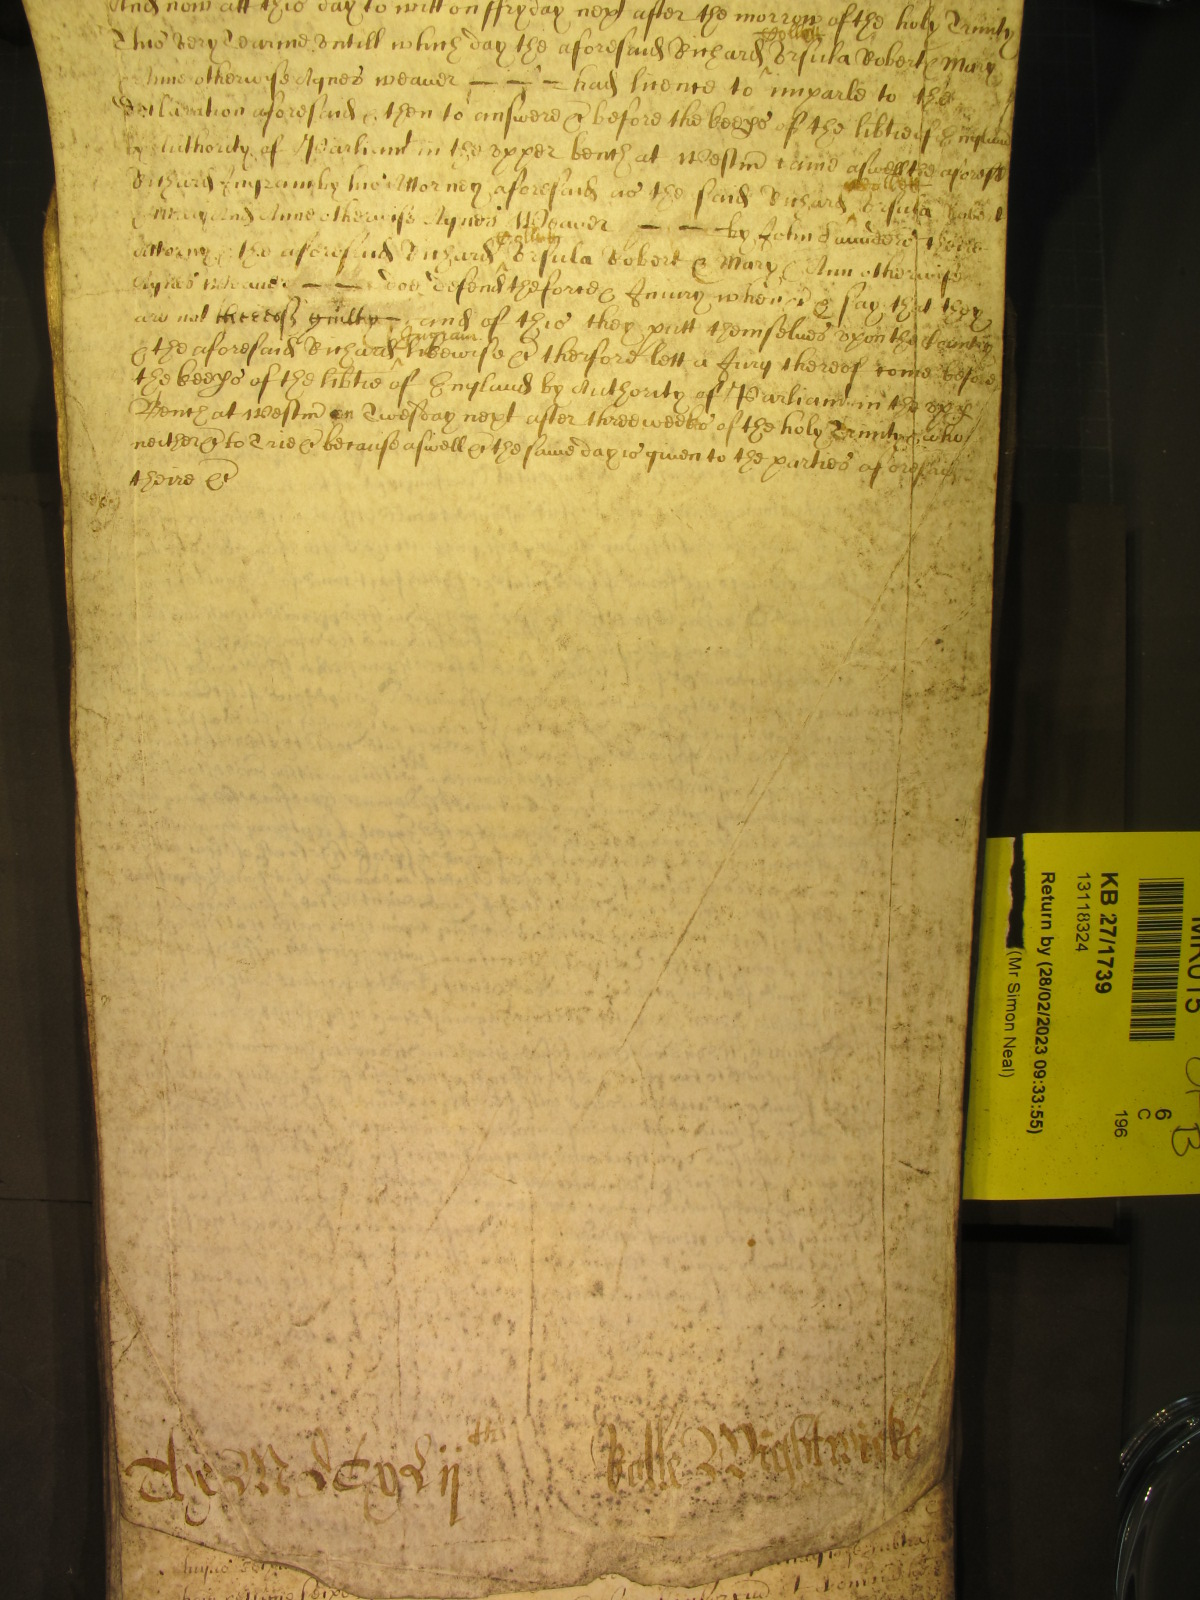 And now att this day to witt on ffryday next after the morrow of the holy Trinity
This very Tearme untill which day the aforesaid Richard Ursula Robert & Mary
& Anne otherwise Agnes weaver — — — had licence to imparle to the
declaration aforesaid & then to answere &c before the keeps of the libtie of England
by Authority of Parliamt in the upper bench at Westm came aswell the aforesd
Richard Ingram by his Attorney aforesaid as the said Richard Ursula
And Anne otherwise Agnes Weaver — — by John Saunders theire
Attorney & the aforesaid Richard Ursula Robert & Mary & Ann otherwise
Agnes Weaver — — doe defend the force & Injury when &c & say that they
are not guilty — and of this they putt themselves upon the Country
& the aforesaid Richard Ingram likewise &c therfore lett a Jury thereof come before
the keeps of the libtie of England by Authority of Parliam in the upp
Bench at Westm on Twesday next after three weeks of the holy Trinity & who
neither &c to Trie &c because aswell &c the same day is given to the parties aforesaid
theire &c
The MdCxLij th Rolle Wightwicke
KB 27/1739
13118324
Return by (28/02/2023 09:33:55)
(Mr Simon Neal)
6
C
196